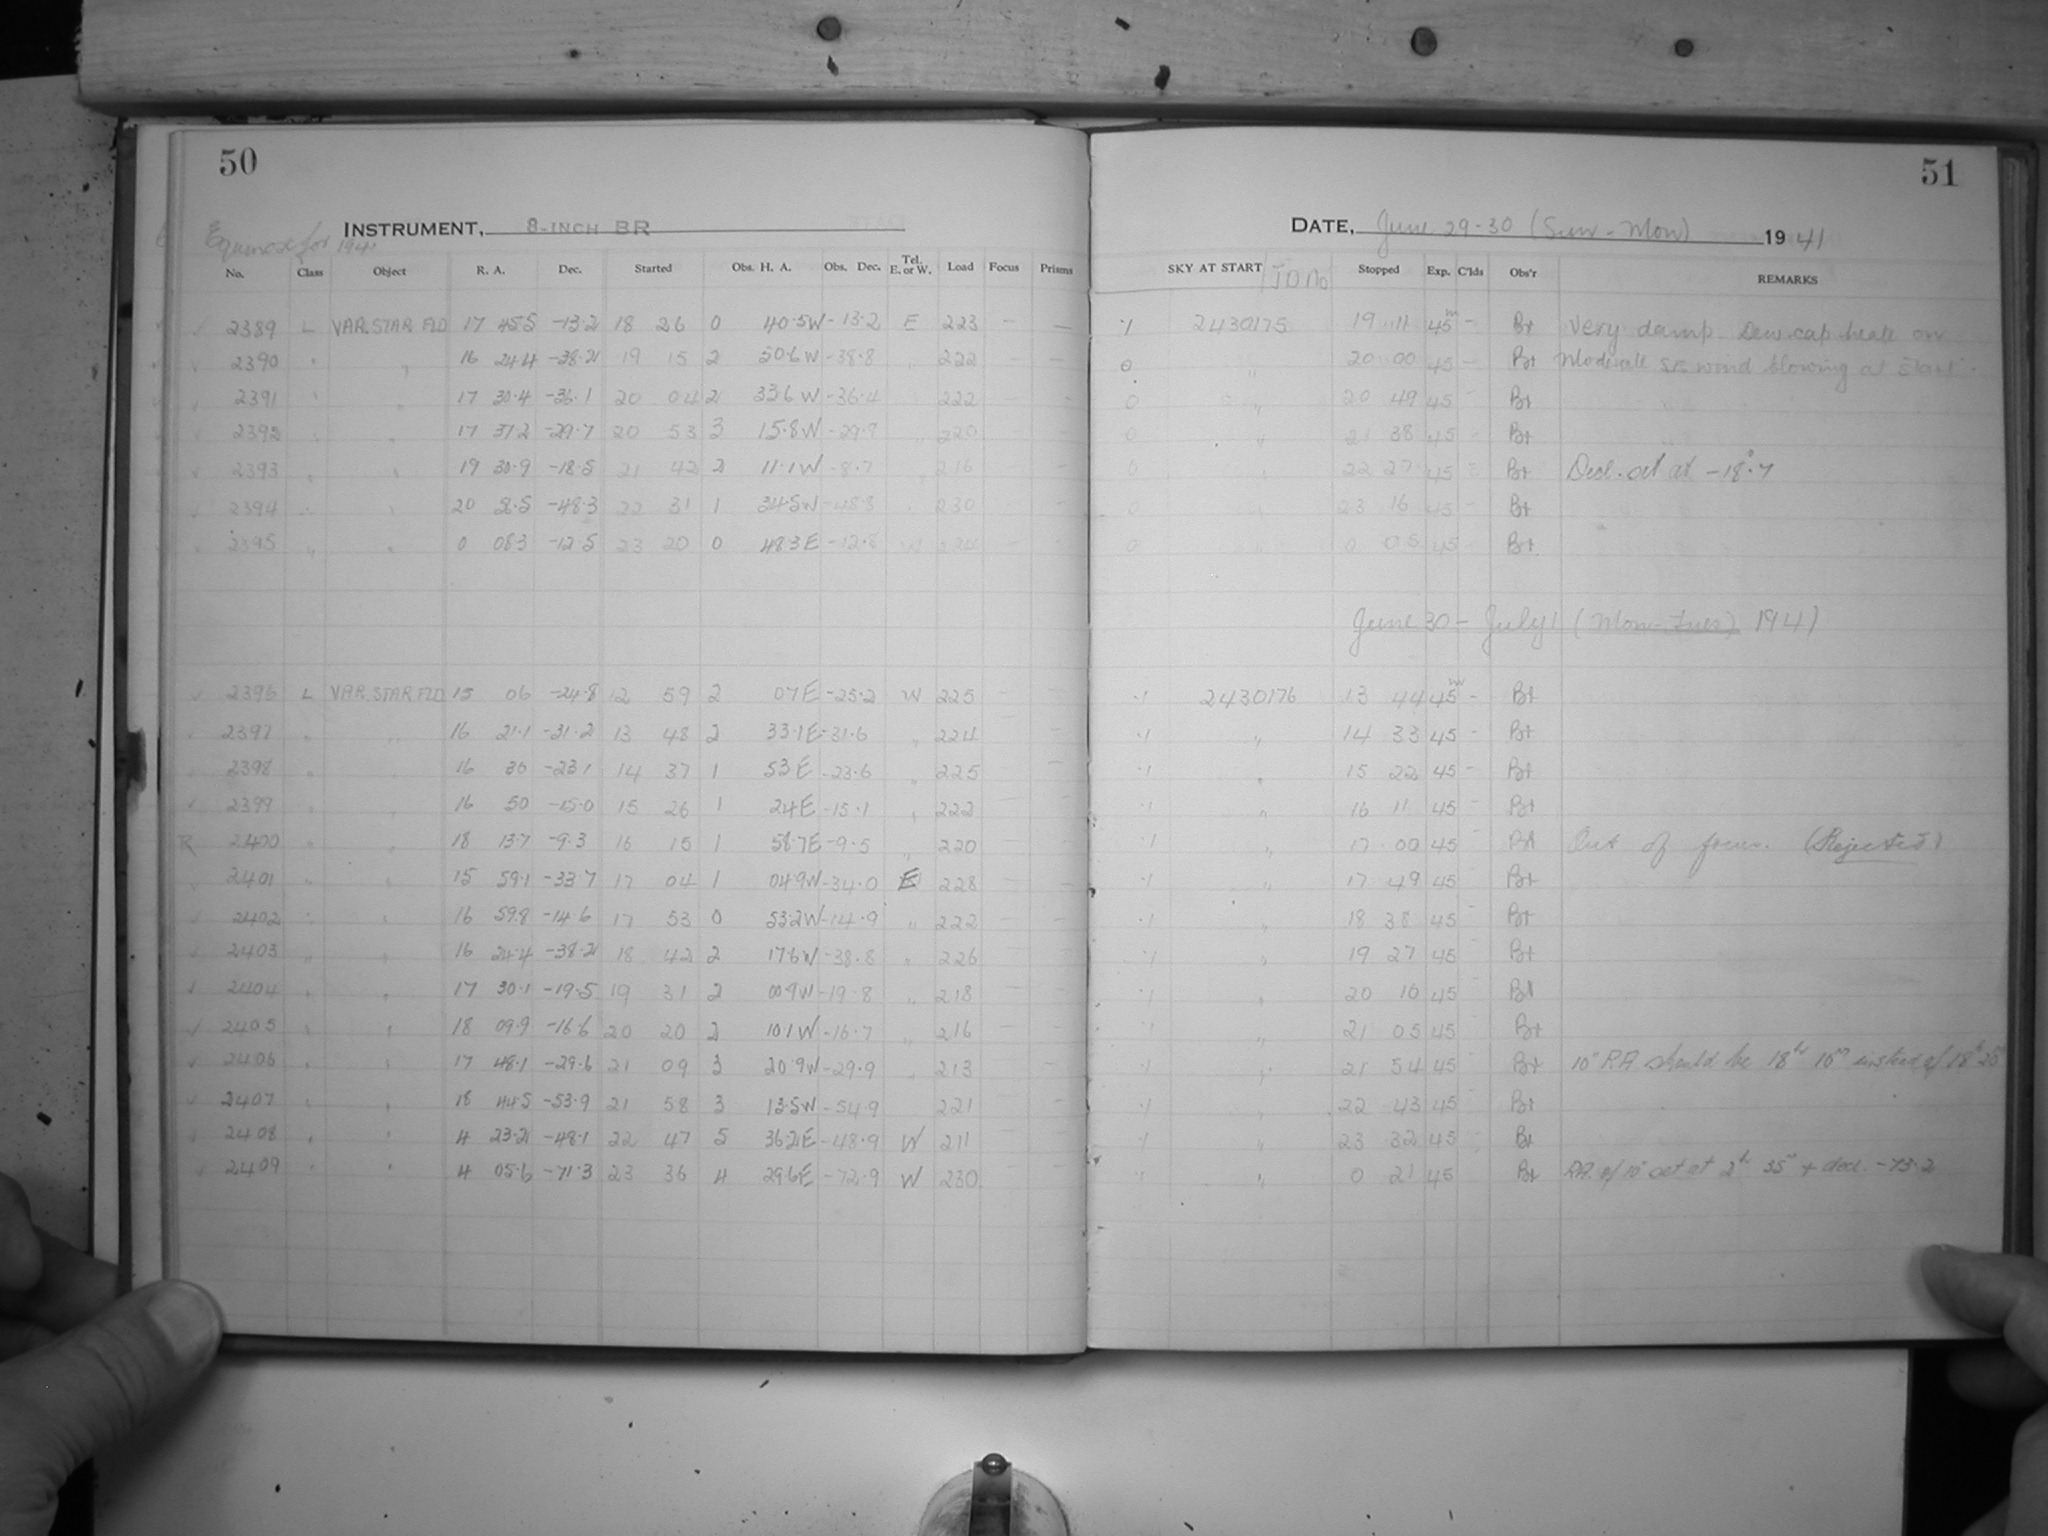 50
51
INSTRUMENT, 8-INCH BR
DATE, June 29-30 (Sun-Mon) 1941
Equinox for 1941
No. Class Object R. A. Dec. Started Obs. H. A. Obs. Dec. Tel. E. or W. Load Focus Prisms SKY AT START JD No Stopped Exp. C'lds Obs'r REMARKS
2389 L VAR. STAR FLD 17 45.5 -13.2 18 26 0 40.5W -13.2 E 223 — — .1 2430175 19 11 45m - Bt Very damp Dew cap heat on
2390 " " 16 24.4 -38.2 19 15 2 50.6W -38.8 " 222 0 " 20 00 45 - Bt Moderate SE wind blowing at start.
2391 " " 17 30.4 -36.1 20 04 2 33.6W -36.4 222 0 " 20 49 45 - Bt
2392 " " 17 37.2 -29.7 20 53 3 15.8W -29.9 220 0 " 21 38 45 - Bt
2393 " " 19 30.9 -18.5 21 42 2 11.1W -8.7 216 0 " 22 27 45 Bt Decl. set at -18°.7
2394 " " 20 -48.3 22 31 1 34.5W 230 0 " 23 16 45 - Bt
2395 " " 0 08.3 -12.5 23 20 0 48.3E -12.8 W 0 " 0 05 45 Bt
June 30 - July 1 (Mon-Tues) 1941
2396 L VAR. STAR FLD 15 06 -24.8 12 59 2 07E -25.2 W 225 .1 2430176 13 44 45m - Bt
2397 " " 16 21.1 -31.2 13 48 2 33.1E -31.6 " 224 .1 " 14 33 45 - Bt
2398 " " 16 30 -23.1 14 37 1 53E -23.6 " 225 .1 " 15 22 45 - Bt
2399 " " 16 50 -15.0 15 26 1 24E -15.1 " 222 .1 " 16 11 45 - Bt
R 2400 " " 18 13.7 -9.3 16 15 1 58.7E -9.5 " 220 .1 " 17 00 45 - Bt Out of focus. (Rejected)
2401 " " 15 59.1 -33.7 17 04 1 04.9W -34.0 E 228 .1 " 17 49 45 - Bt
2402 " " 16 59.8 -14.6 17 53 0 53.2W -14.9 " 222 .1 " 18 38 45 - Bt
2403 " " 16 24.4 -38.2 18 42 2 17.6W -38.8 " 226 .1 " 19 27 45 - Bt
2404 " " 17 30.1 -19.5 19 31 2 00.9W -19.8 " 218 .1 " 20 16 45 - Bt
2405 " " 18 09.9 -16.6 20 20 2 10.1W -16.7 " 216 .1 " 21 05 45 - Bt
2406 " " 17 48.1 -29.6 21 09 3 20.9W -29.9 " 213 .1 " 21 54 45 - Bt 10" RA should be 18h 10m instead of 18h 25m
2407 " " 18 44.5 -53.9 21 58 3 13.5W -54.9 221 .1 " 22 43 45 - Bt
2408 " " 4 23.2 -48.1 22 47 5 36.2E -48.9 W 211 .1 " 23 32 45 Bt
2409 " " 4 05.6 -71.3 23 36 4 29.6E -72.9 W 230 .1 " 0 21 45 Bt RA of 10" set at 2h 35m + decl. -73.2